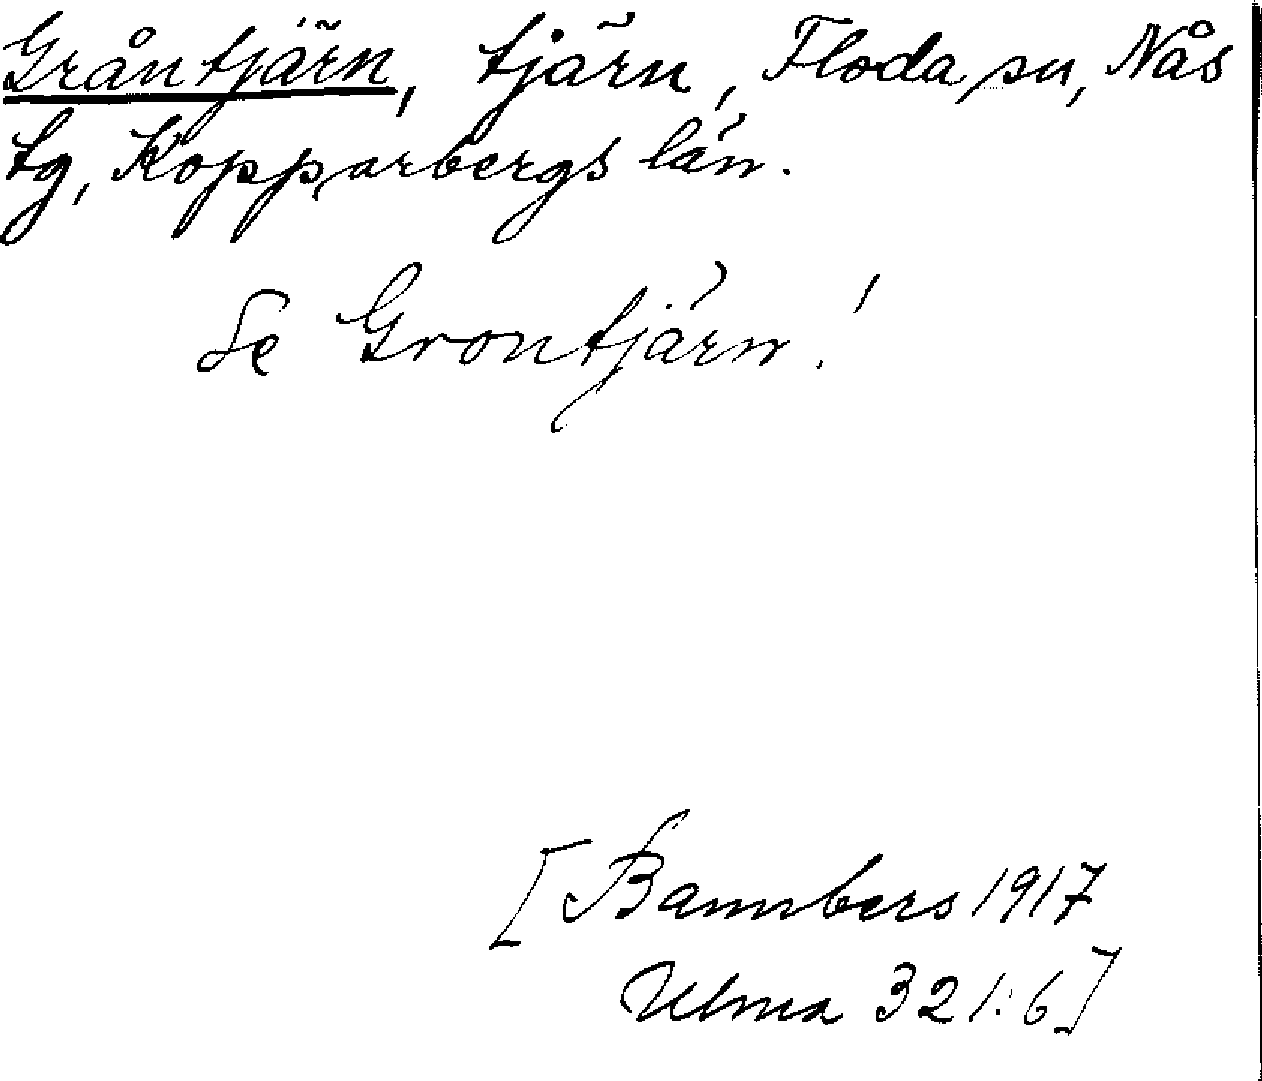 Gråntjärn, tjärn, Floda sn, Nås
tg, Kopparbergs län.
Se Grontjärn!
[Bannbers 1917
Ulma 321:6]